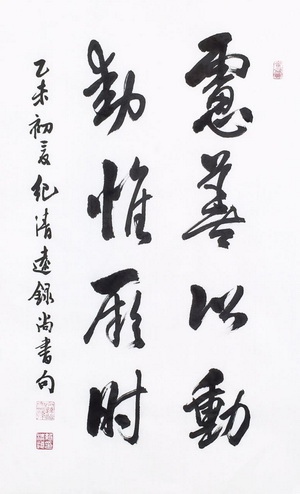 慮善以動
動惟厥时
乙未初夏紀清遠錄尚書句